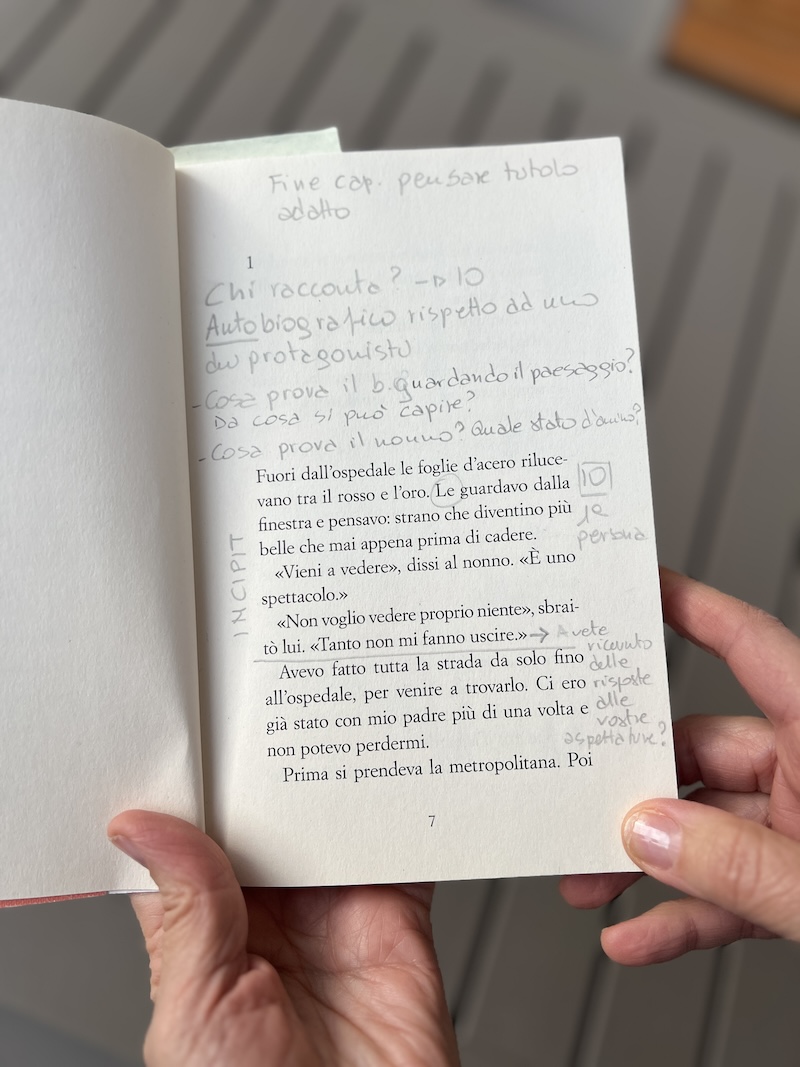 Fine cap. pensare titolo
adatto
1
Chi racconta? → IO
Autobiografico rispetto ad uno
dei protagonisti
- Cosa prova il b. guardando il paesaggio?
Da cosa si può capire?
- Cosa prova il nonno? Quale stato d'animo?
INCIPIT
Fuori dall'ospedale le foglie d'acero riluce-
vano tra il rosso e l'oro. Le guardavo dalla
finestra e pensavo: strano che diventino più
belle che mai appena prima di cadere.
«Vieni a vedere», dissi al nonno. «È uno
spettacolo.»
«Non voglio vedere proprio niente», sbrai-
tò lui. «Tanto non mi fanno uscire.»
Avevo fatto tutta la strada da solo fino
all'ospedale, per venire a trovarlo. Ci ero
già stato con mio padre più di una volta e
non potevo perdermi.
Prima si prendeva la metropolitana. Poi
IO
1a
persona
→ Avete
ricevuto
delle
risposte
alle
vostre
aspettative?
7